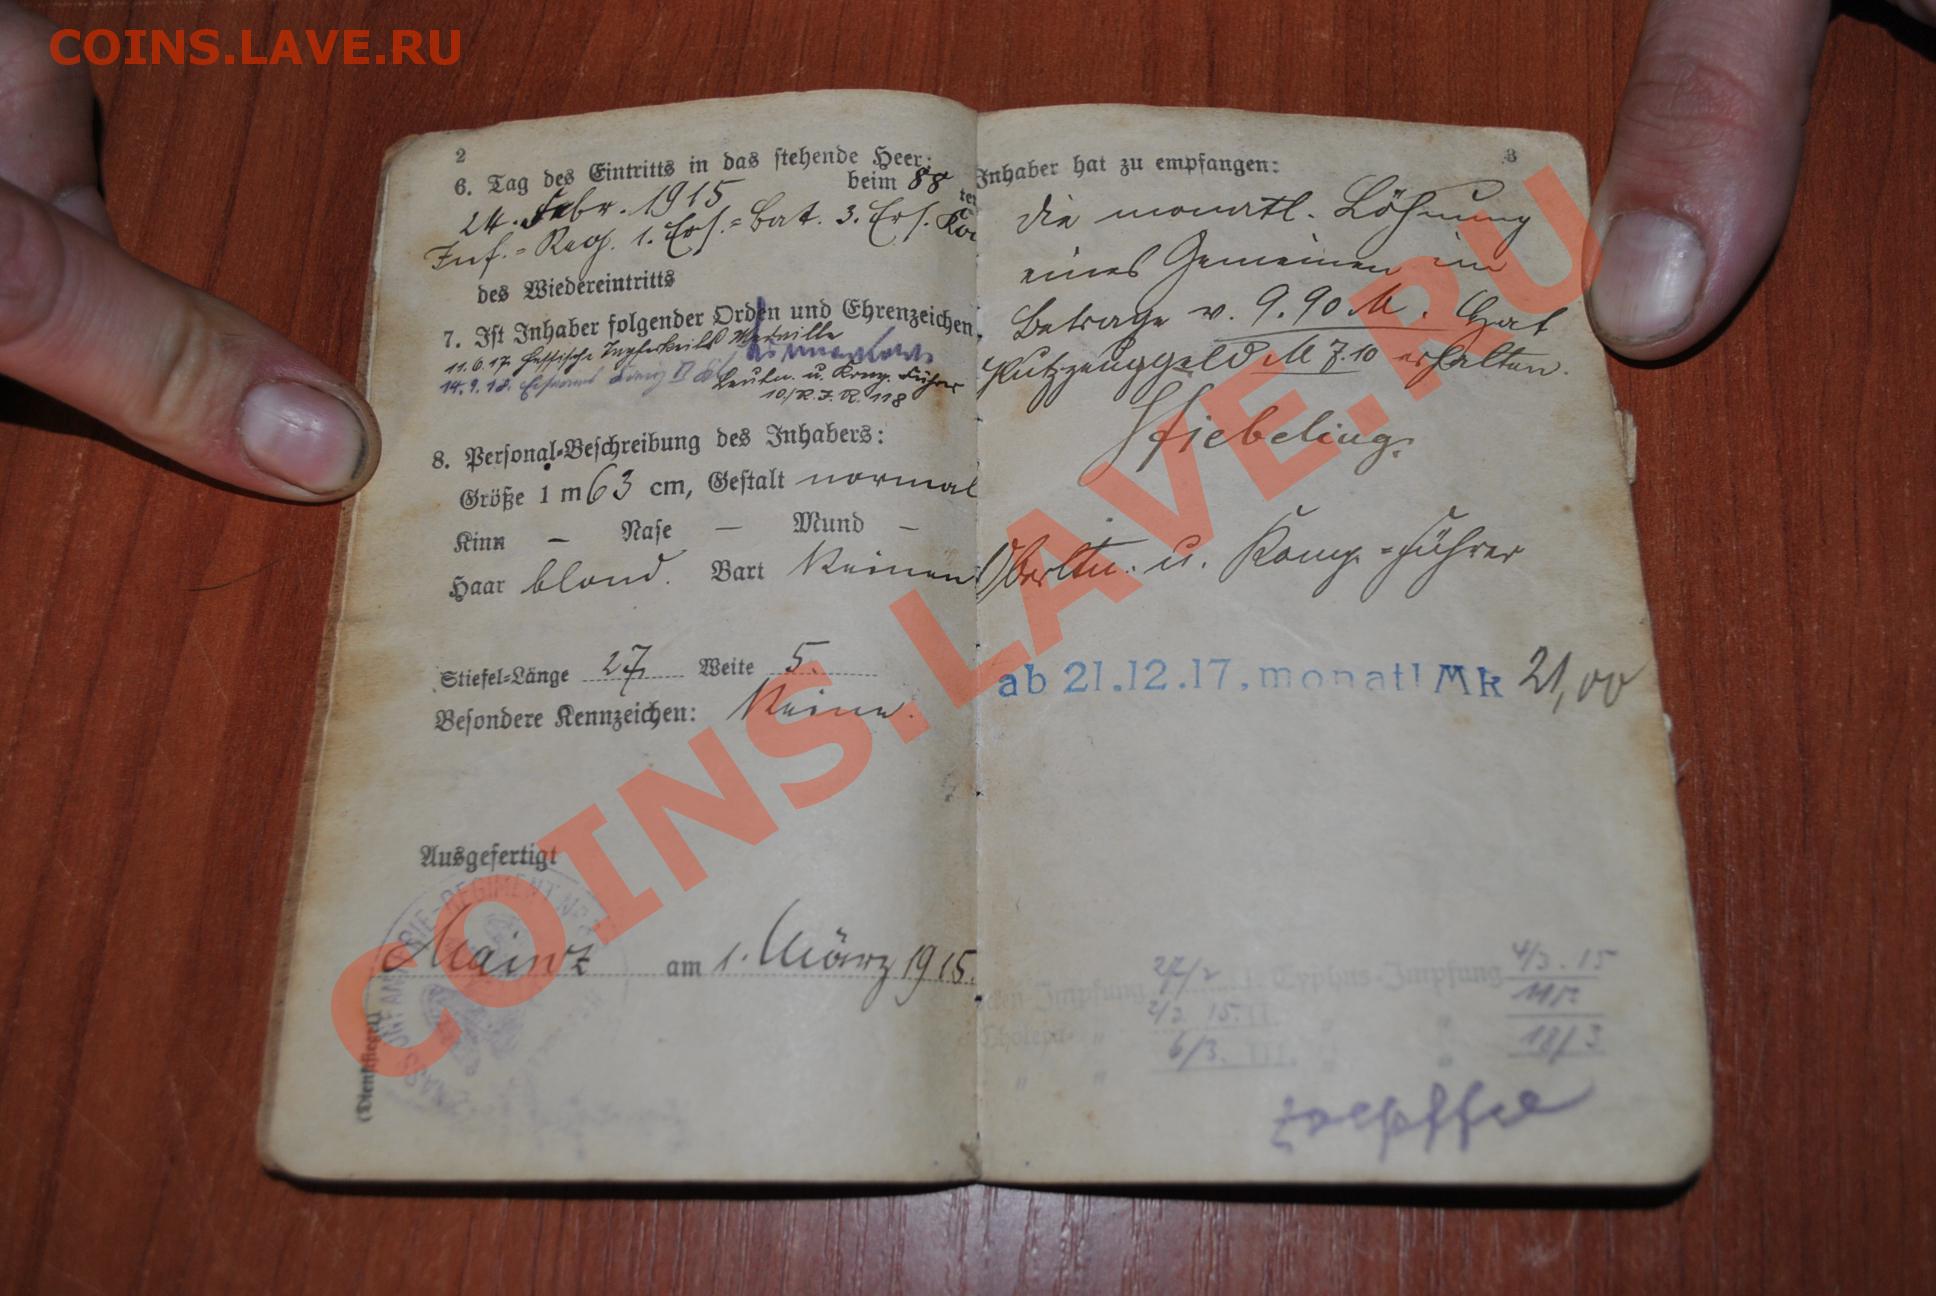 COINS.LAVE.RU
2
6. Tag des Eintritts in das stehende Heer:
beim 88 ten
24. Febr. 1915
Inf.=Reg. 1. Ers.=Bat. 3. Ers.
des Wiedereintritts
7. Ist Inhaber folgender Orden und Ehrenzeichen
11.6.17. Hessische Tapferkeits Medaille
14.9.18. II
Leutn. u. Komp. Führer
10./R.I.R. 118
8. Personal-Beschreibung des Inhabers:
Größe 1 m 63 cm, Gestalt normal
Kinn – Nase – Mund –
Haar blond. Bart Keinen
Stiefel-Länge 27 Weite 5.
Besondere Kennzeichen: Keine.
Ausgefertigt
Mainz am 1. März 1915.
3
Inhaber hat zu empfangen:
die monatl. Löhnung
eines Gemeinen im
Betrage v. 9.90 M. Hat
Putzzeuggeld M 7.10 erhalten.
Oberltn. u. Komp.=Führer
ab 21.12.17. monatl Mk 21,00
Impfung 27/2 I. Typhus-Impfung 4/3. 15
2/3 15. II. " "
Cholera- "
6/3. III. " " 18/3
" "
COINS.LAVE.RU